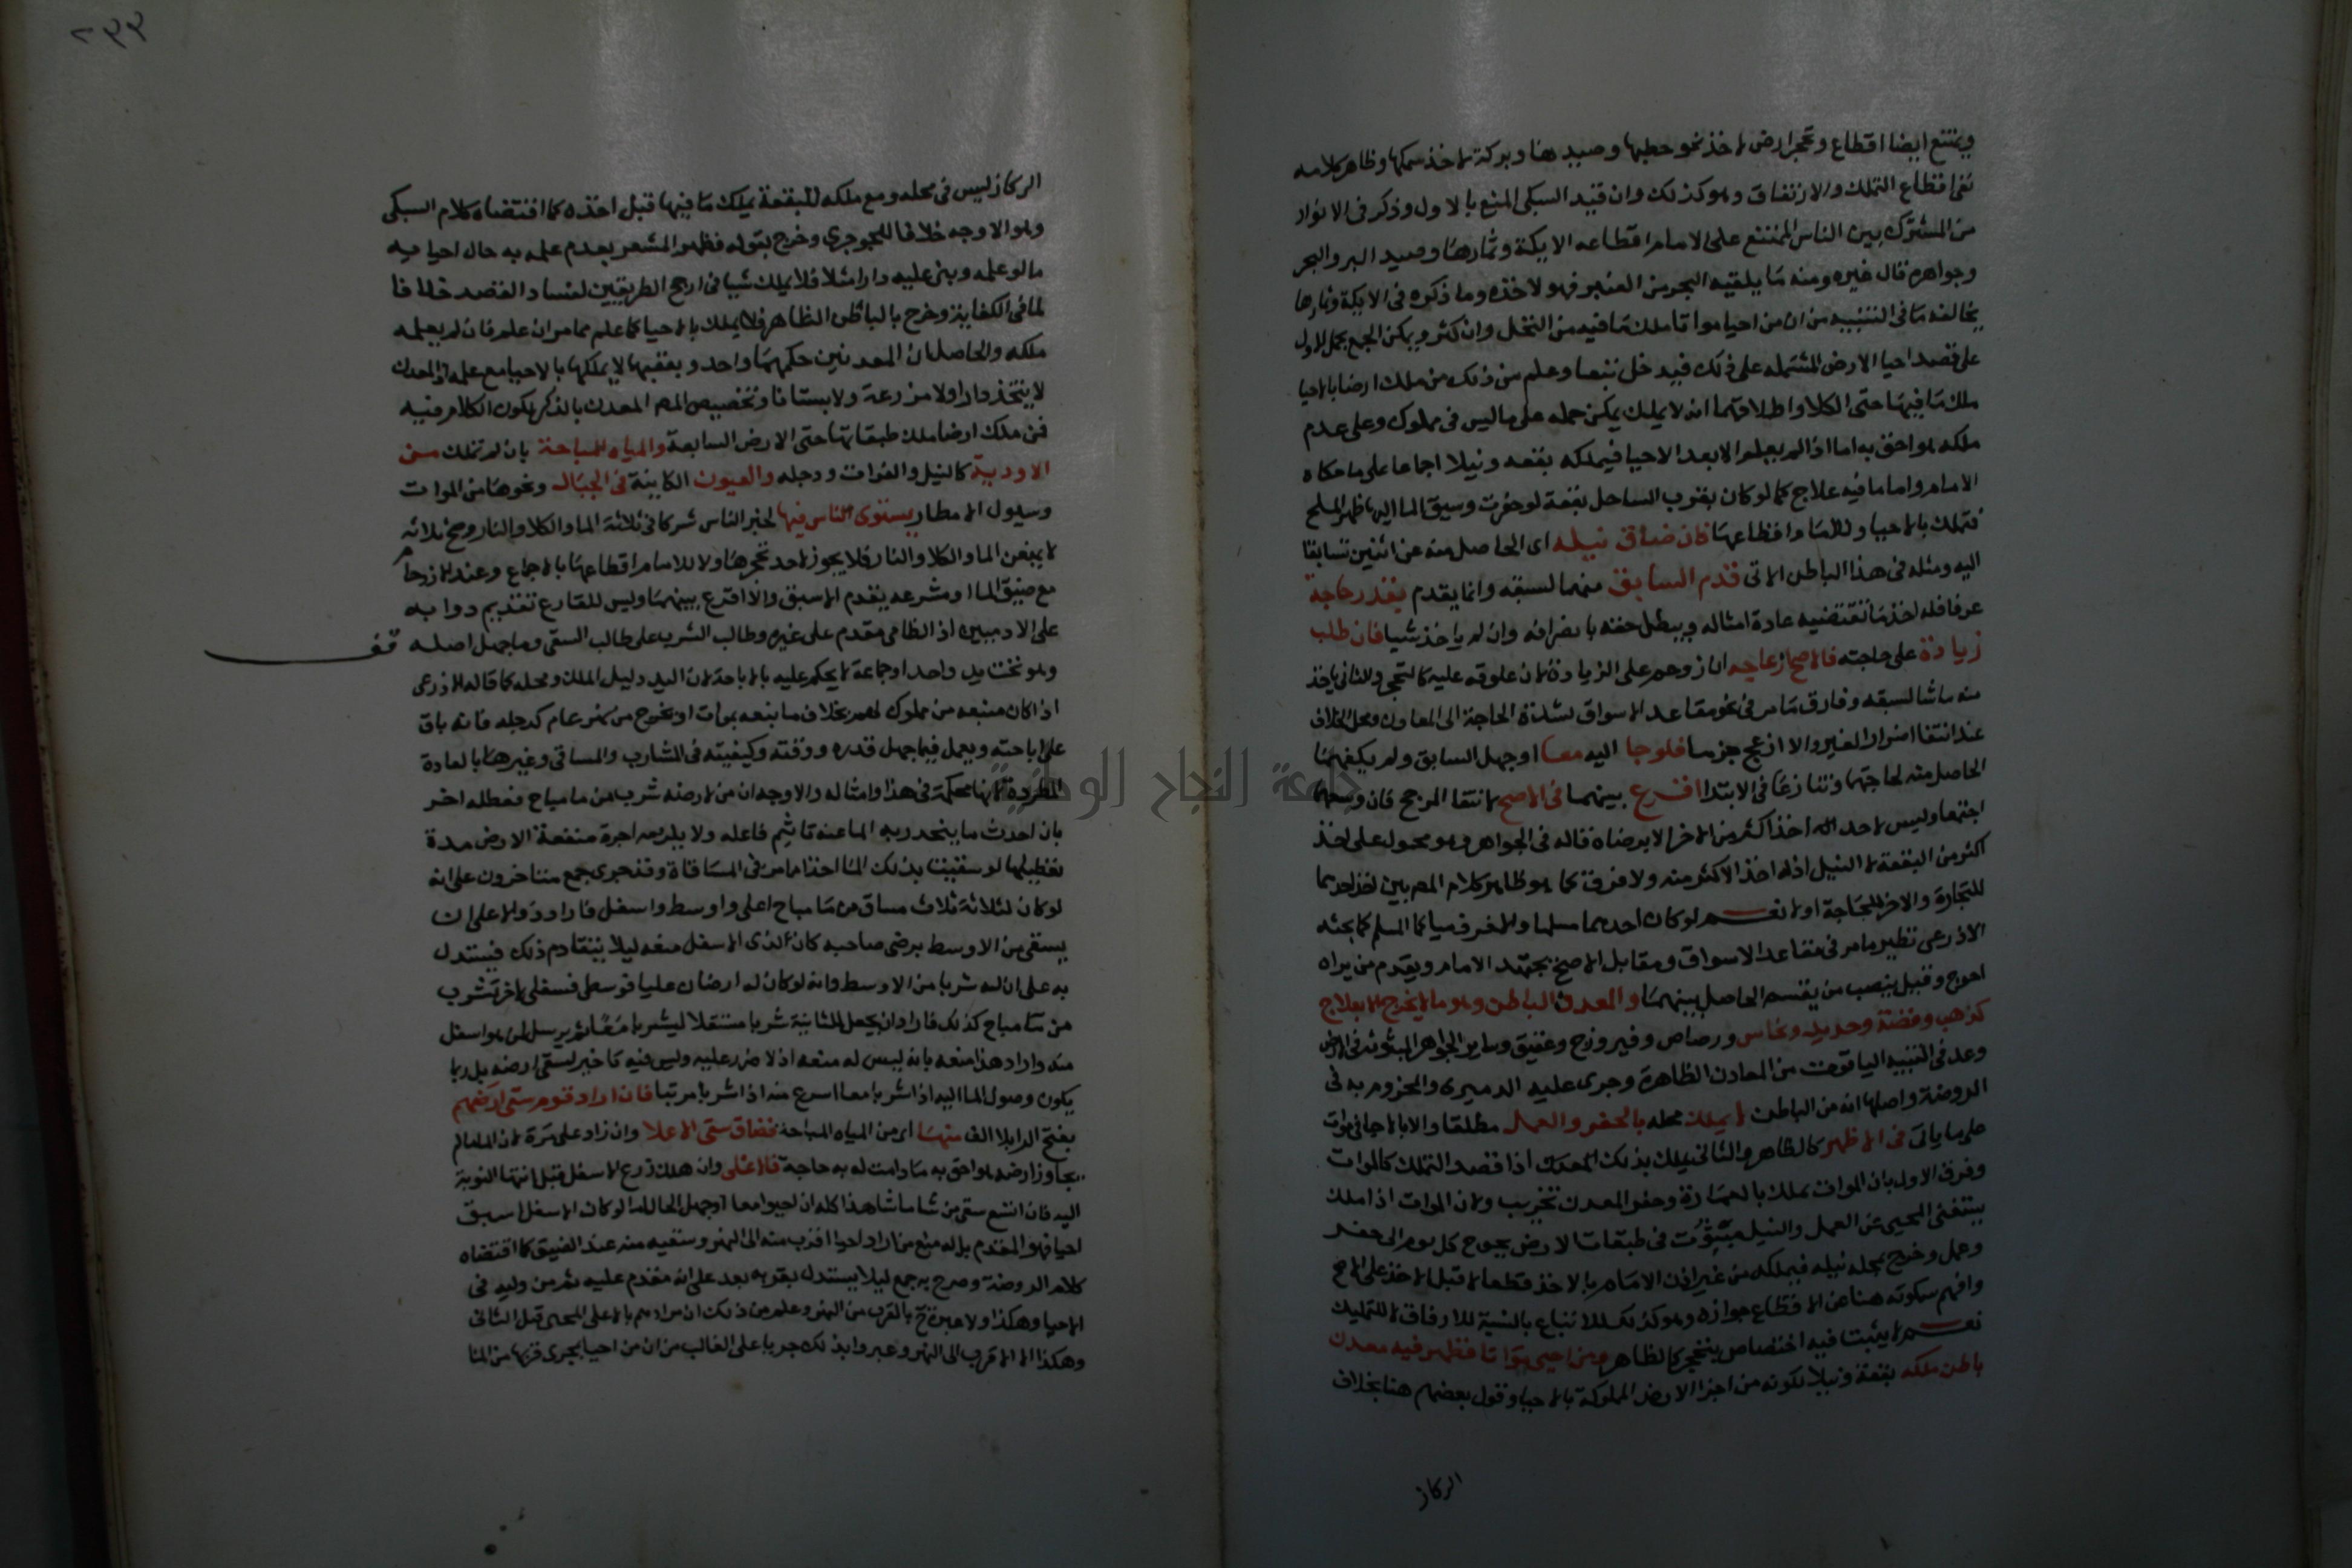 ويمتنع ايضا اقطاع وتحجر ارض لاخذ نحو حطبها وصيدها وبركة لاخذ سمكها وظاهر كلامه
نفي اقطاع التملك والارتفاق وهو كذلك وان قيد السبكي المنع بالاول وذكر في الانوار
من المشترك بين الناس الممتنع على الامام اقطاعه الايكة وثمارها وصيد البر والبحر
وجواهره قال غيره ومنه ما يلقيه البحر من العنبر فهو لاخذه وما ذكره في الايكة وثمارها
يخالفه ما في التنبيه من ان من احيا مواتا ملك ما فيه من النخل وان كثر ويمكن الجمع بحمل الاول
على قصد احيا الارض المشتمله على ذلك فيدخل تبعا وعلم من ذلك من ملك ارضا بالاحيا
ملك ما فيها حتى الكلا واطلاقهما انه لا يملك يمكن حمله على ما ليس في مملوك وعلى عدم
ملكه هو احق به اما اذا لم يعلم الا بعد الاحيا فيملكه بقعه ونيلا اجماعا على ما حكاه
الامام واما ما فيه علاج كما لو كان بقرب الساحل بقعة لو حفرت وسيق الما اليها ظهر الملح
فتملك بالاحيا وللامام اقطاعها فان ضاق نيله اي الحاصل منه عن اثنين تسابقا
اليه ومثله في هذا الباطن الاتي قدم السابق منهما لسبقه وانما يقدم بقدر حاجة
عرفا فله اخذ ما تقتضيه عادة امثاله ويبطل حقه بانصرافه وان لم ياخذ شيا فان طلب
زيادة على حاجته فالاصح ازعاجه ان زوحم على الزيادة لان عكوفه عليه كالتحجر والثاني ياخذ
منه ما شا لسبقه وفارق ما مر في نحو مقاعد الاسواق لشدة الحاجة الى المعادن ومحل الخلاف
عند انتفا اضرار الغير والا ازعج جزما فلو جا اليه معا او جهل السابق ولم يكفهما
الحاصل منه لحاجتهما وتنازعا في الابتدا اقرع بينهما في الاصح لانتفا المرجح فان وسعهما
اجتمعا وليس لاحد اخذ اكثر من الاخر الا برضاه قاله في الجواهر وهو محمول على اخذ
اكثر من البقعة لا النيل اذ له اخذ الاكثر منه ولا فرق كما هو ظاهر كلام المص بين اخذ احدهما
للتجارة والاخر للحاجة او لا نعم لو كان احدهما مسلما والاخر ذميا المسلم كما بحثه
الاذرعي نظير ما مر في مقاعد الاسواق ومقابل الاصح يجتهد الامام ويقدم من يراه
احوج وقيل ينصب من يقسم الحاصل بينهما والمعدن الباطن وهو ما لا يخرج الا بعلاج
كذهب وفضة وحديد ونحاس ورصاص وفيروزج وعقيق وساير الجواهر المبثوثه في الارض
وعد في التنبيه الياقوت من المعادن الظاهرة وجرى عليه الدميري والمجزوم به في
الروضة واصلها انه من الباطن لا يملك محله بالحفر والعمل مطلقا ولا بالاحيا في موات
على ما ياتي في الاظهر كالظاهر والثاني يملك بذلك المعدن اذا قصد التملك كالموات
وفرق الاول بان الموات يملك بالعمارة وحفر المعدن تخريب ولان الموات اذا ملك
يستغني المحيي عن العمل والنيل مبثوث في طبقات الارض يحوج كل يوم الى حفر
وعمل وخرج بمحله نيله فيملكه من غير اذن الامام بالاخذ قطعا لا قبل الاخذ على الاصح
وافهم سكوته هنا عن الاقطاع جوازه وهو كذلك للاتباع بالنسبة للارفاق لا للتمليك
نعم لا يثبت فيه اختصاص بتحجر كالظاهر ومن احيي مواتا فظهر فيه معدن
باطن ملكه بقعة ونيلا لكونه من اجزا الارض المملوكة بالاحيا وقول بعضهم هنا بخلاف
الركاز
٢٣٣
الركاز ليس في محله ومع ملكه للبقعة يملك ما فيها قبل اخذه كما اقتضاه كلام السبكي
وهو الاوجه خلافا للجوجري وخرج بقوله فظهر المشعر بعدم علمه به حال احيايه
ما لو علمه وبنى عليه دارا مثلا فلا يملك شيا في ارجح الطريقين لفساد القصد خلافا
لما في الكفاية وخرج بالباطن الظاهر فلا يملك بالاحيا كما علم مما مر ان علم فان لم يعلمه
ملكه والحاصل ان المعدنين حكمهما واحد وبقعتها لا يملكها بالاحيا مع علمه اذ المعدن
لا يتخذ دارا ولا مزرعة ولا بستانا وتخصيص المص المعدن بالذكر لكون الكلام فيه
فمن ملك ارضا ملك طبقاتها حتى الارض السابعة والمياه المباحة بان لم تملك من
الاودية كالنيل والفرات ودجله والعيون الكاينة في الجبال ونحوها من الموات
وسيول الامطار يستوي الناس فيها لخبر الناس شركا في ثلاثة الما والكلا والنار وصح ثلاثة
لا يمنعن الما والكلا والنار فلا يجوز لاحد تحجرها ولا للامام اقطاعها بالاجماع وعند الازدحام
مع ضيق الما او مشرعه يقدم الاسبق والا اقرع بينهما وليس للقارع تقديم دوابه
على الادميين اذ الظامي مقدم على غيره وطالب الشرب على طالب السقي وما جهل اصله قف
وهو تحت يد واحد او جماعة لا يحكم عليه بالاباحة لان اليد دليل الملك ومحله كما قاله الاذرعي
اذا كان منبعه من مملوك لهم بخلاف ما منبعه بموات او يخرج من نهر عام كدجله فانه باق
على اباحته ويعمل فيما جهل قدره ووقته وكيفيته في المشارب والمساقي وغيرها بالعادة
المطردة لانها محكمة في هذا وامثاله والاوجه ان من لارضه شرب من ما مباح فعطله اخر
بان احدث ما ينحدر به الما عنه تاثيم فاعله ولا يلزمه اجرة منفعة الارض مدة
تعطيلها لو سقيت بذلك الما اخذا مما مر في المساقاة وقد جرى جمع متاخرون على انه
لو كان لثلاثة ثلاث مساق من ما مباح اعلى واوسط واسفل فاراد ذو الاعلى ان
يسقي من الاوسط برضى صاحبه كان لذي الاسفل منعه ليلا يتقادم ذلك فيستدل
به على ان له شربا من الاوسط وانه لو كان له ارضان عليا فوسطى فسفلى لاخر تشرب
من ما مباح كذلك فاراد ان يجعل للثانية شربا مستقلا ليشربا معا ثم يرسل لمن هو اسفل
منه واراد هذا منعه بانه ليس له منعه اذ لا ضرر عليه وليس فيه تاخير لسقي ارضه بل ربما
يكون وصول الما اليه اذا شربا معا اسرع منه اذا شربا مرتبا فان اراد قوم سقي ارضهم
بفتح الرا بلا الف منها اي من المياه المباحة فضاق سقي الاعلا وان زاد على مرة لان الما ما لم
يجاوز ارضه هو احق به ما دامت له به حاجة فالاعلى وان هلك زرع الاسفل قبل انتها النوبة
اليه فان اتسع سقي من شا ما شا هذا كله ان احيوا معا او جهل الحال اما لو كان الاسفل اسبق
احيا فهو المقدم بل له منع من اراد احيا اقرب منه الى النهر وسقيه منه عند الضيق كما اقتضاه
كلام الروضة وصرح به جمع ليلا يستدل بقربه بعد على انه مقدم عليه ثم من وليه في
الاحيا وهكذا ولا عبرة ح بالقرب من النهر وعلم من ذلك ان مرادهم بالاعلى المحيي قبل الثاني
وهكذا لا الاقرب الى النهر وعبروا بذلك جريا على الغالب من ان من احيا يتحرى قربها من الما
جامعة النجاح الوطنية